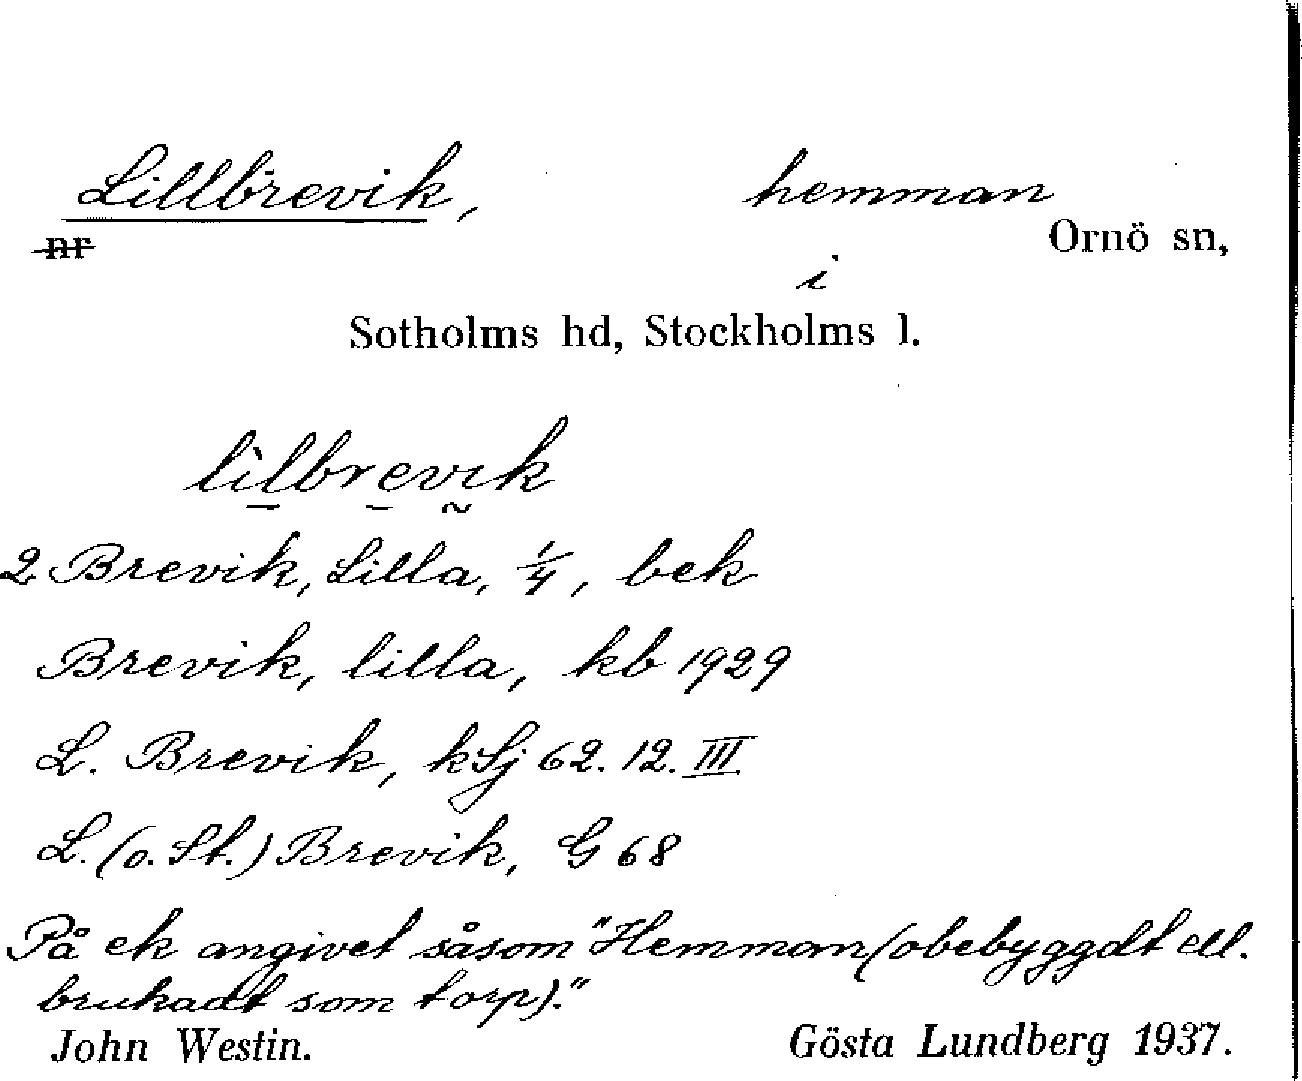 Lillbrevik, hemman
nr Ornö sn,
i
Sotholms hd, Stockholms l.
lìlbrevık
2 Brevik, Lilla, 1/4, bek
Brevik, lilla, kb 1929
L. Brevik, kSj 62. 12. III
L. (o. St.) Brevik, G 68
På ek angivet såsom "Hemman (obebyggdt ell.
brukadt som torp)."
John Westin. Gösta Lundberg 1937.